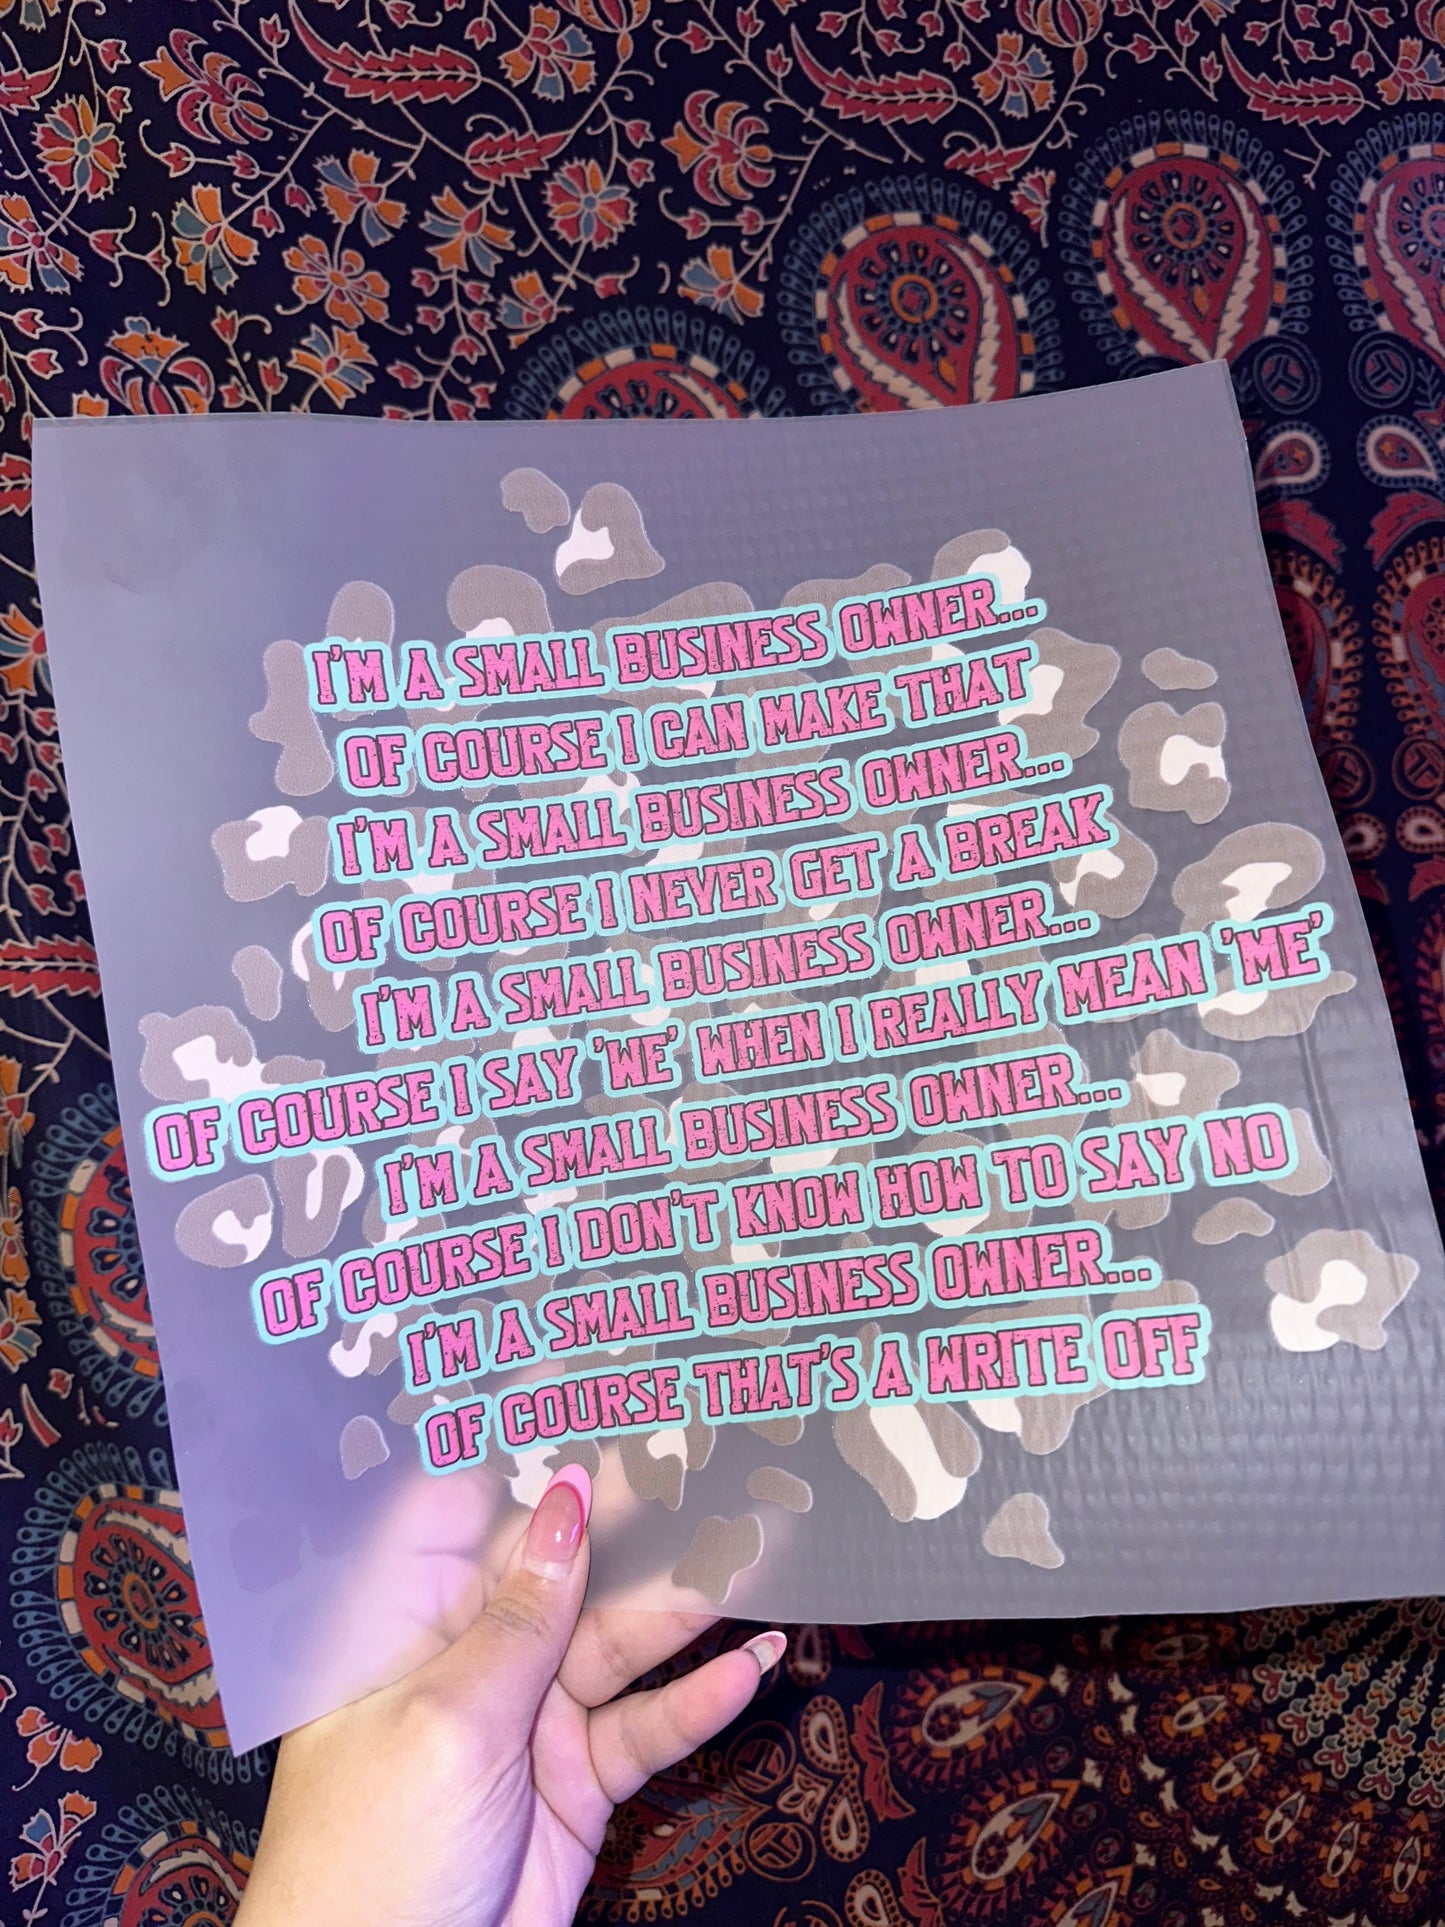 I'M A SMALL BUSINESS OWNER...
OF COURSE I CAN MAKE THAT
I'M A SMALL BUSINESS OWNER...
OF COURSE I NEVER GET A BREAK
I'M A SMALL BUSINESS OWNER...
OF COURSE I SAY 'WE' WHEN I REALLY MEAN 'ME'
I'M A SMALL BUSINESS OWNER...
OF COURSE I DON'T KNOW HOW TO SAY NO
I'M A SMALL BUSINESS OWNER...
OF COURSE THAT'S A WRITE OFF